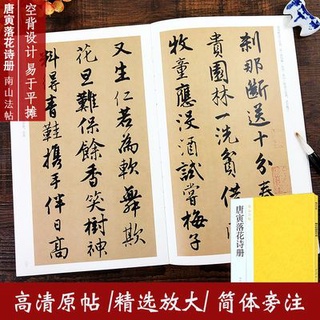 空背设计 易于平摊
唐寅落花诗册 南山法帖
刹那斷送十分春
貴園林一洗貧借
牧童應浸酒試嘗梅子
又生仁若為軟舞
花旦難保餘香笑樹神
料得青鞋攜手伴日高
唐寅落花诗册
高清原帖 /精选放大/ 简体旁注